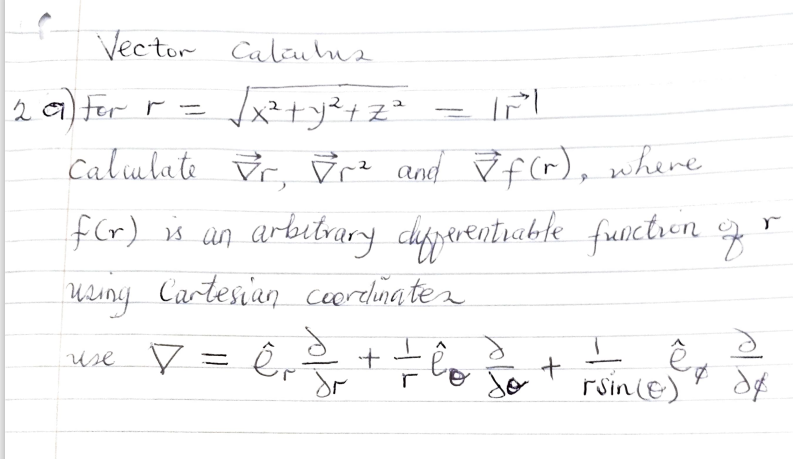 Vector Calculus
2 a) For r = √x²+y²+z² = |r⃗|
Calculate ∇⃗r, ∇⃗r² and ∇⃗f(r), where
f(r) is an arbitrary differentiable function of r
using Cartesian coordinates
use ∇ = ê_r ∂/∂r + 1/r ê_θ ∂/∂θ + 1/rsin(θ) ê_φ ∂/∂φ